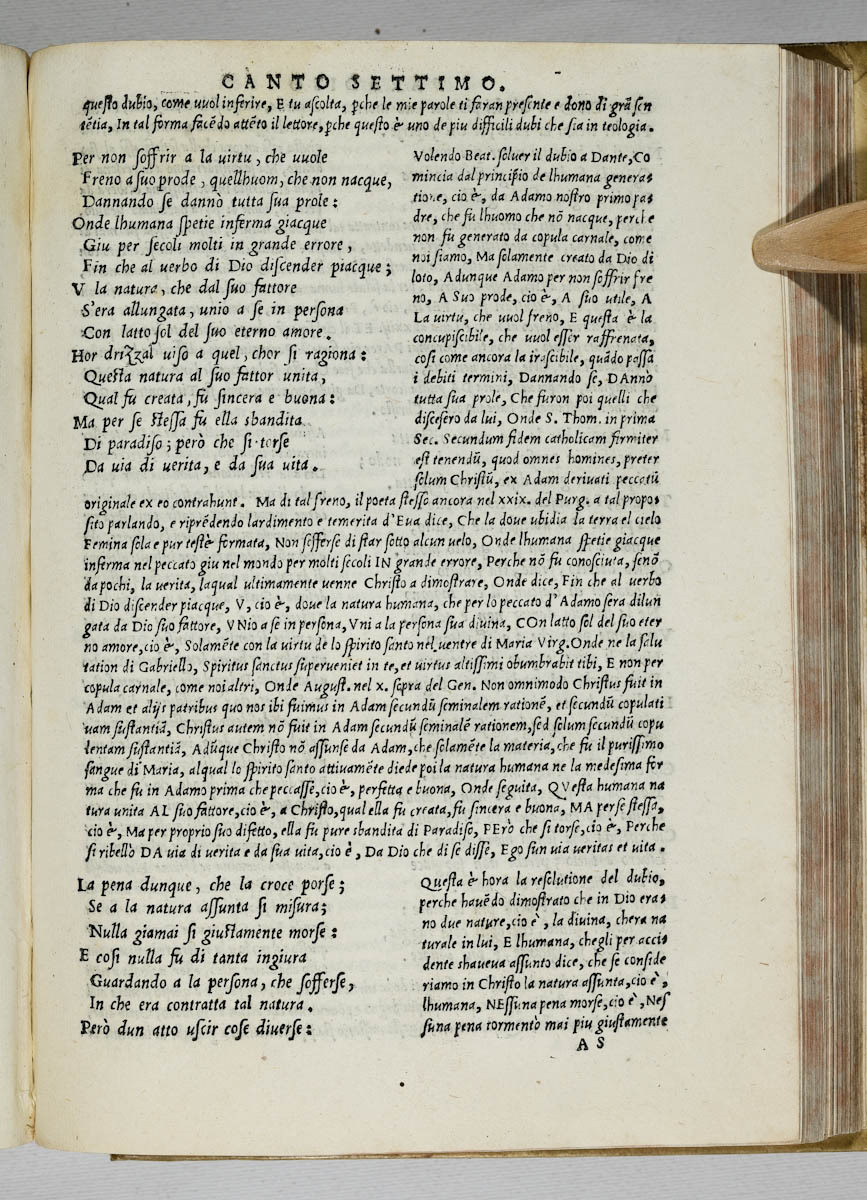 CANTO SETTIMO.
questo dubio, come uuol inferire, E tu ascolta, pche le mie parole ti faran presente e dono di grã sen
tẽtia, In tal forma facẽdo attẽto il lettore, pche questo è uno de piu difficili dubi che sia in teologia.
Per non soffrir a la uirtu, che uuole
Freno a suo prode, quellhuom, che non nacque,
Dannando se dannò tutta sua prole:
Onde lhumana spetie inferma giacque
Giu per secoli molti in grande errore,
Fin che al uerbo di Dio discender piacque;
V la natura, che dal suo fattore
S'era allungata, unio a se in persona
Con latto sol del suo eterno amore.
Hor drizzal uiso a quel, chor si ragiona:
Questa natura al suo fattor unita,
Qual fu creata, fu sincera e buona:
Ma per se stessa fu ella sbandita
Di paradiso; però che si torse
Da uia di uerita, e da sua uita.
Volendo Beat. soluer il dubio a Dante, Co
mincia dal principio de lhumana genera=
tione, cio è, da Adamo nostro primo pa=
dre, che fu lhuomo che nõ nacque, perche
non fu generato da copula carnale, come
noi siamo, Ma solamente creato da Dio di
loto, Adunque Adamo per non soffrir fre
no, A Suo prode, cio è, A suo utile, A
La uirtu, che uuol freno, E questa è la
concupiscibile, che uuol esser raffrenata,
cosi come ancora la irascibile, quãdo passa
i debiti termini, Dannando se, DAnnò
tutta sua prole, Che furon poi quelli che
discesero da lui, Onde S. Thom. in prima
Sec. Secundum fidem catholicam firmiter
est tenendũ, quod omnes homines, preter
solum Christũ, ex Adam deriuati peccatũ
originale ex eo contrahunt. Ma di tal freno, il poeta stesso ancora nel xxix. del Purg. a tal propo=
sito parlando, e riprẽdendo lardimento e temerita d'Eua dice, Che la doue ubidia la terra el cielo
Femina sola e pur testè formata, Non sofferse di star sotto alcun uelo, Onde lhumana spetie giacque
inferma nel peccato giu nel mondo per molti secoli IN grande errore, Perche nõ fu conosciuta, senõ
da pochi, la uerita, laqual ultimamente uenne Christo a dimostrare, Onde dice, Fin che al uerbo
di Dio discender piacque, V, cio è, doue la natura humana, che per lo peccato d'Adamo sera dilun
gata da Dio suo fattore, VNio a se in persona, Vni a la persona sua diuina, COn latto sol del suo eter
no amore, cio è, Solamẽte con la uirtu de lo spirito santo nel uentre di Maria Virg. Onde ne la salu
tation di Gabriello, Spiritus sanctus superueniet in te, et uirtus altissimi obumbrabit tibi, E non per
copula carnale, come noi altri, Onde August. nel x. sopra del Gen. Non omnimodo Christus fuit in
Adam et alijs patribus quo nos ibi fuimus in Adam secundũ seminalem rationẽ, et secundũ copulati
uam sustantiã, Christus autem nõ fuit in Adam secundũ seminalẽ rationem, sed solum secundũ copu
lentam sustantiã, Adũque Christo nõ assunse da Adam, che solamẽte la materia, che fu il purissimo
sangue di Maria, al qual lo spirito santo attiuamẽte diede poi la natura humana ne la medesima for
ma che fu in Adamo prima che peccassẽ, cio è, perfetta e buona, Onde seguita, QVesta humana na
tura unita AL suo fattore, cio è, a Christo, qual ella fu creata, fu sincera e buona, MA per se stessa,
cio è, Ma per proprio suo difetto, ella fu pure sbandita di Paradiso, PErò che si torse, cio è, Perche
si ribellò DA uia di uerita e da sua uita, cio è, Da Dio che di se disse, Ego sun uia ueritas et uita.
La pena dunque, che la croce porse;
Se a la natura assunta si misura;
Nulla giamai si giustamente morse:
E cosi nulla fu di tanta ingiura
Guardando a la persona, che sofferse,
In che era contratta tal natura.
Però dun atto uscir cose diuerse:
Questa è hora la resolutione del dubio,
perche hauẽdo dimostrato che in Dio era=
no due nature, cio è, la diuina, chera na
turale in lui, E lhumana, chegli per acci
dente shaueua assunto dice, che se conside
riamo in Christo la natura assunta, cio è,
lhumana, NEssuna pena morse, cio è, Nes
suna pena tormentò mai piu giustamente
A S